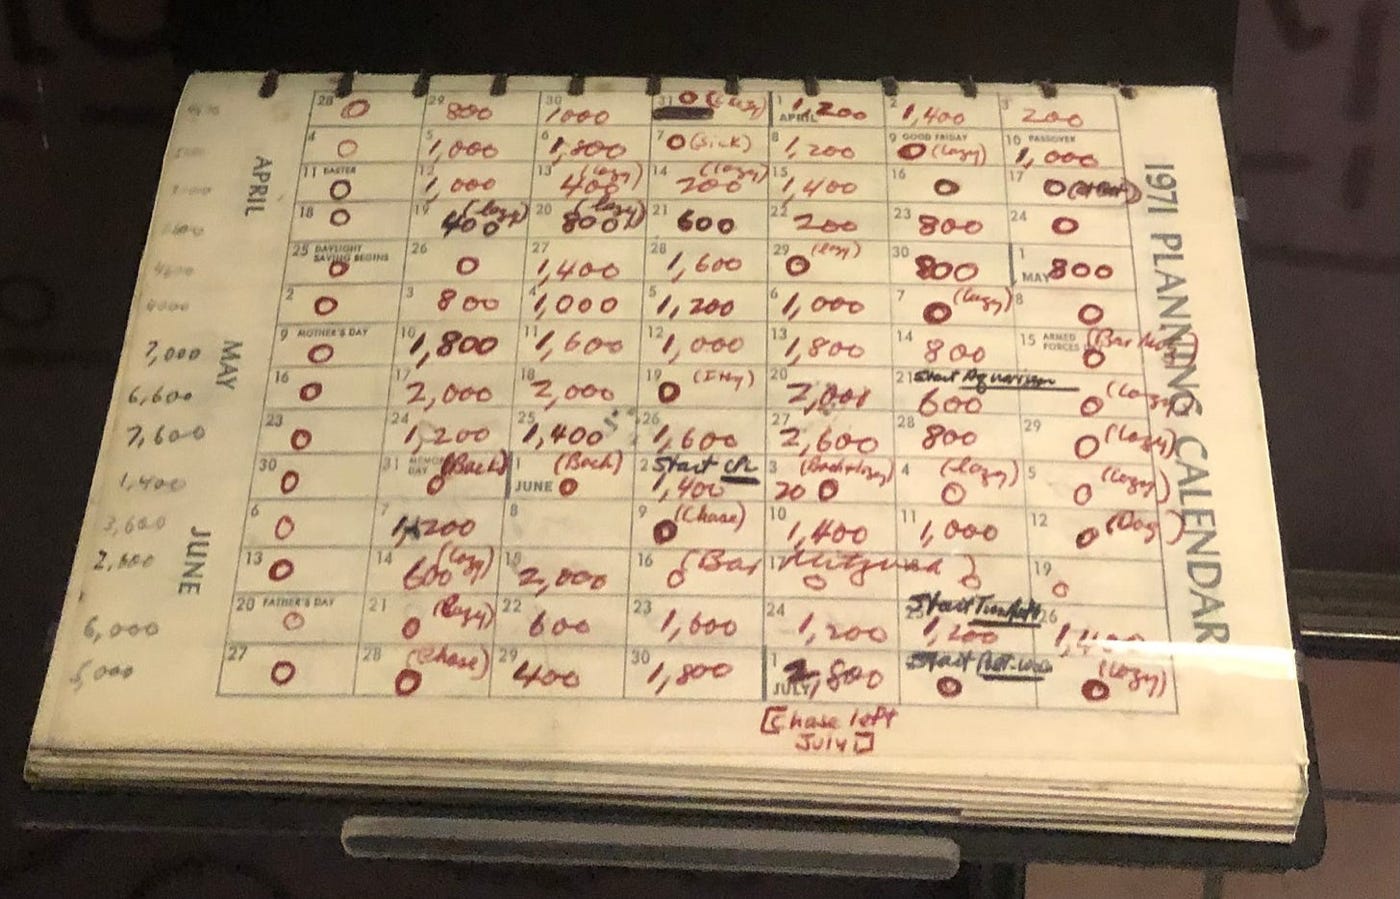 1971 PLANNING CALENDAR
APRIL
28 0 29 800 30 1,000 31 0 (Lazy) 1 APRIL 1,200 2 1,400 3 200
4 0 5 1,000 6 1,800 7 0 (sick) 8 1,200 9 GOOD FRIDAY 0 (Lazy) 10 PASSOVER 1,000
11 EASTER 0 12 1,000 13 (lazy) 400 14 (lazy) 200 15 1,400 16 0 17 0
18 0 19 (lazy) 400 20 (lazy) 800 21 600 22 200 23 800 24 0
25 DAYLIGHT SAVING BEGINS 0 26 0 27 1,400 28 1,600 29 0 (lazy) 30 800 1 MAY 800
2 0 3 800 4 1,000 5 1,200 6 1,000 7 0 (lazy) 8 0
MAY
7,000 9 MOTHER'S DAY 0 10 1,800 11 1,600 12 1,000 13 1,800 14 800 15 ARMED FORCES 0
6,600 16 0 17 2,000 18 2,000 19 0 20 2,000 21 Start Aquarium 600 0 (Lazy)
7,600 23 0 24 1,200 25 1,400 26 1,600 27 2,600 28 800 29 0 (Lazy)
1,400 30 0 31 MEMORIAL DAY (Back) 0 1 JUNE (Back) 0 2 Start 1,400 3 20 0 4 (lazy) 0 5 (Lazy) 0
JUNE
3,600 6 0 7 1,200 8 9 (Chase) 0 10 1,400 11 1,000 12 0 (Dog)
2,600 13 0 14 (lazy) 600 15 2,000 16 0 (Bar 17 Mitzvah 0 ) 0 19 0
6,000 20 FATHER'S DAY 0 21 (lazy) 0 22 600 23 1,600 24 1,200 25 Start 1,200 26 1,400
5,000 27 0 28 (Chase) 0 29 400 30 1,800 1 JULY 2,800 Start 0 (Lazy) 0
[Chase left
July]